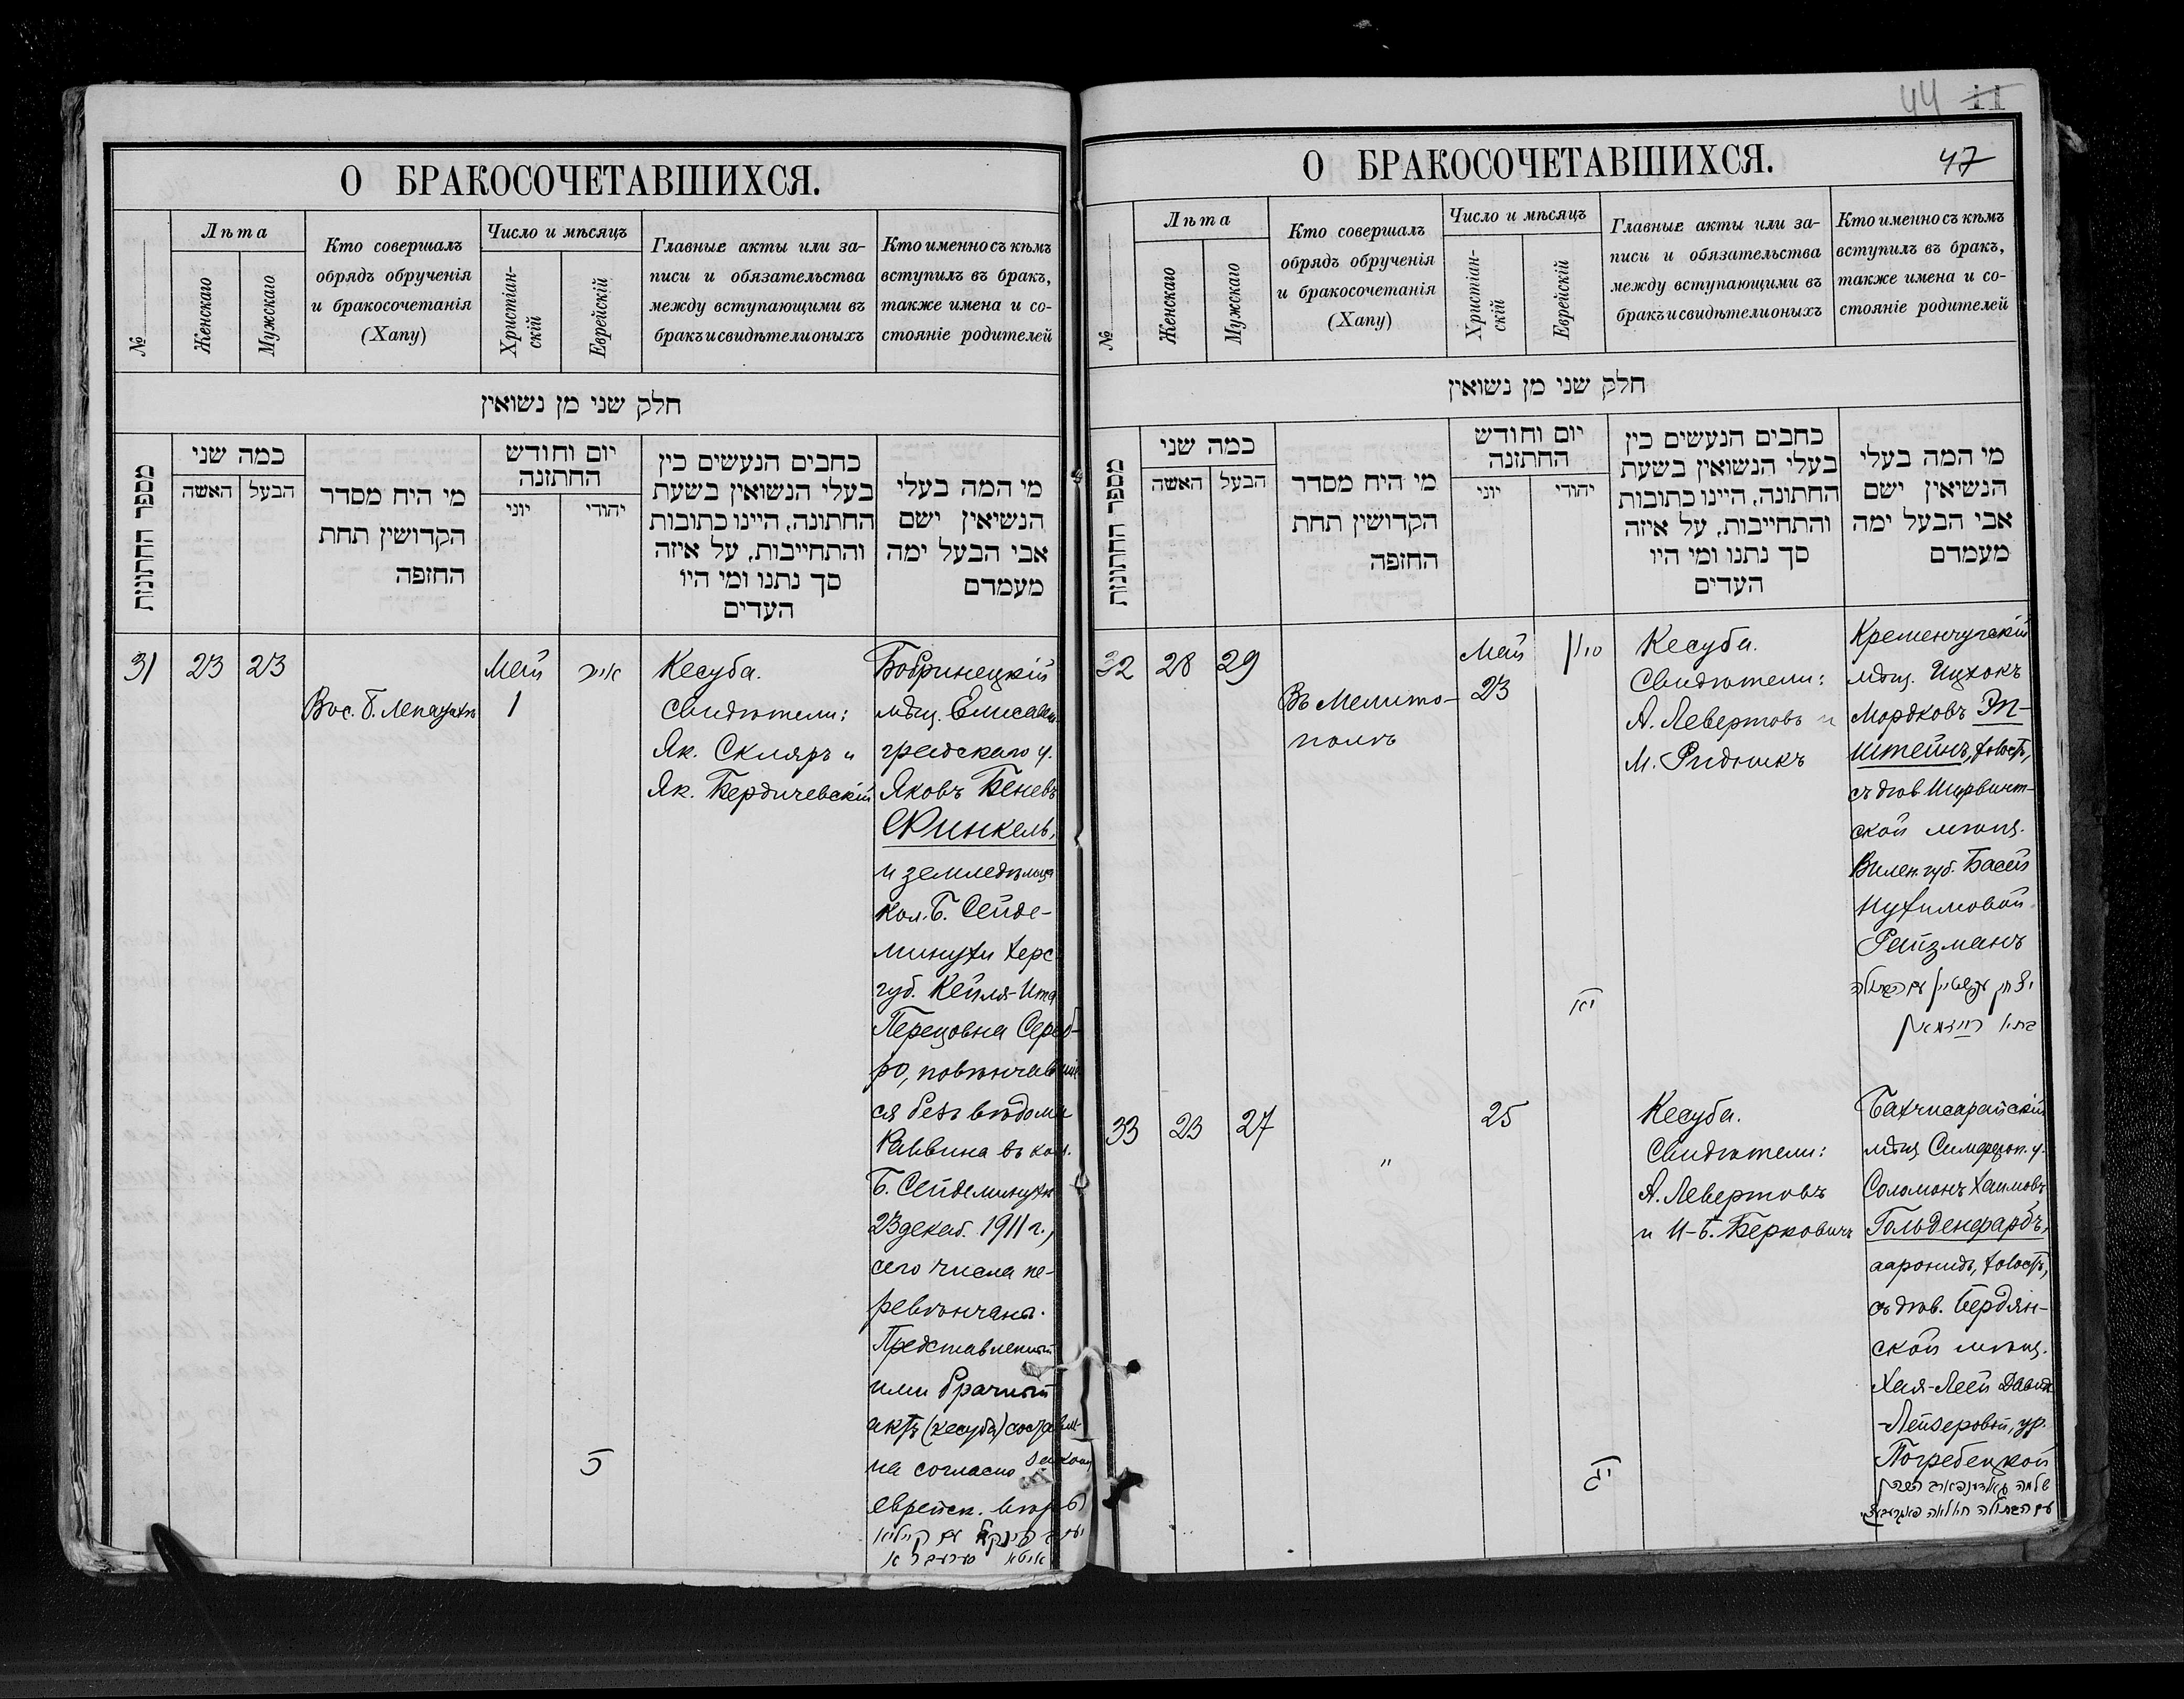 О БРАКОСОЧЕТАВШИХСЯ.
№
Лѣта
Женскаго
Мужскаго
Кто совершалъ
обрядъ обрученія
и бракосочетанія
(Хапу)
Число и мѣсяцъ
Христіан-
скій
Еврейскій
Главные акты или за-
писи и обязательства
между вступающими въ
бракъ и свидѣтели оныхъ
Кто именно съ кѣмъ
вступилъ въ бракъ,
также имена и со-
стояніе родителей
חלק שני מן נשואין
מספר החתונות
כמה שני
האשה
הבעל
מי היח מסדר
הקדושין תחת
החופה
יום וחודש
החתונה
יוני
יהודי
כתבים הנעשים בין
בעלי הנשואין בשעת
החתונה, היינו כתובות
והתחייבות, על איזה
סך נתנו ומי היו
העדים
מי המה בעלי
הנשיאין ישם
אבי הבעל ימה
מעמדם
31
23
23
Вос. б.
Май
1
אייר
ה
Кесуба.
Свидѣтели:
Як. Скляръ и
Як. Бердичевскій
Бобринецкій
мѣщ. Елисавет
градскаго у.
Яковъ Беневъ
Финкель,
и земледѣлица
кол. Б. Сейде-
минухи Херс
губ. Кейля-Ита
Перецовна Сереб-
ро, повѣнчавшіе
ся безъ вѣдома
Раввина въ кол.
Б. Сейдеминухѣ
23 декаб. 1911 г.,
сего числа пе-
ревѣнчаны.
Представленный
ими брачный
актъ (кесуба) составле-
на согласно закону
еврейск. вѣры
יעקב פינקל עם קיילא
איטא סערעברא
44 11
О БРАКОСОЧЕТАВШИХСЯ.
47
№
Лѣта
Женскаго
Мужскаго
Кто совершалъ
обрядъ обрученія
и бракосочетанія
(Хапу)
Число и мѣсяцъ
Христіан-
скій
Еврейскій
Главные акты или за-
писи и обязательства
между вступающими въ
бракъ и свидѣтели оныхъ
Кто именно съ кѣмъ
вступилъ въ бракъ,
также имена и со-
стояніе родителей
חלק שני מן נשואין
מספר החתונות
כמה שני
האשה
הבעל
מי היח מסדר
הקדושין תחת
החופה
יום וחודש
החתונה
יוני
יהודי
כתבים הנעשים בין
בעלי הנשואין בשעת
החתונה, היינו כתובות
והתחייבות, על איזה
סך נתנו ומי היו
העדים
מי המה בעלי
הנשיאין ישם
אבי הבעל ימה
מעמדם
32
28
29
Въ Мелито-
полѣ
Май
23
סיון
יא
Кесуба.
Свидѣтели:
А. Левертовъ и
М. Ридникъ
Кременчугскій
мѣщ. Ицхокъ
Мордковъ Эп-
штейнъ, холост,
съ дѣв. Ширвинт-
ской мѣщ.
Вилен. губ. Басей
Нухимовой
Рейзманъ
יצחק עפשטיין עם הבתולה
בתי' רייזמאן
33
23
27
"
25
יג
Кесуба.
Свидѣтели:
А. Левертовъ
и И-Б. Берковичъ
Бахчисарайскій
мѣщ. Симфероп. у.
Соломонъ Хаимовъ
Гольденфарбъ,
ааронидъ, холост,
съ дѣв. Бердян-
ской мѣщ.
Хая-Леей Давид
-Лейзеровой, ур.
Погребецкой
שלמה גאלדענפארב
עם הבתולה חי' לאה